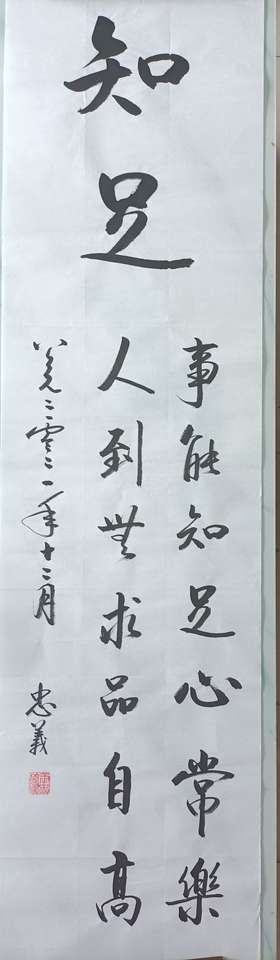 知足
事能知足心常樂
人到無求品自高
公元二零二一年十二月
忠義